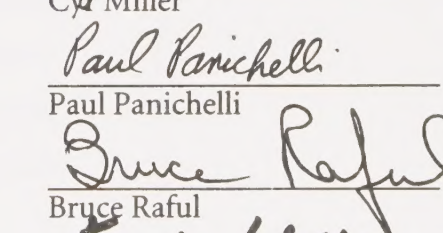 Miller
Paul Panichelli
Paul Panichelli
Bruce Raful
Bruce Raful